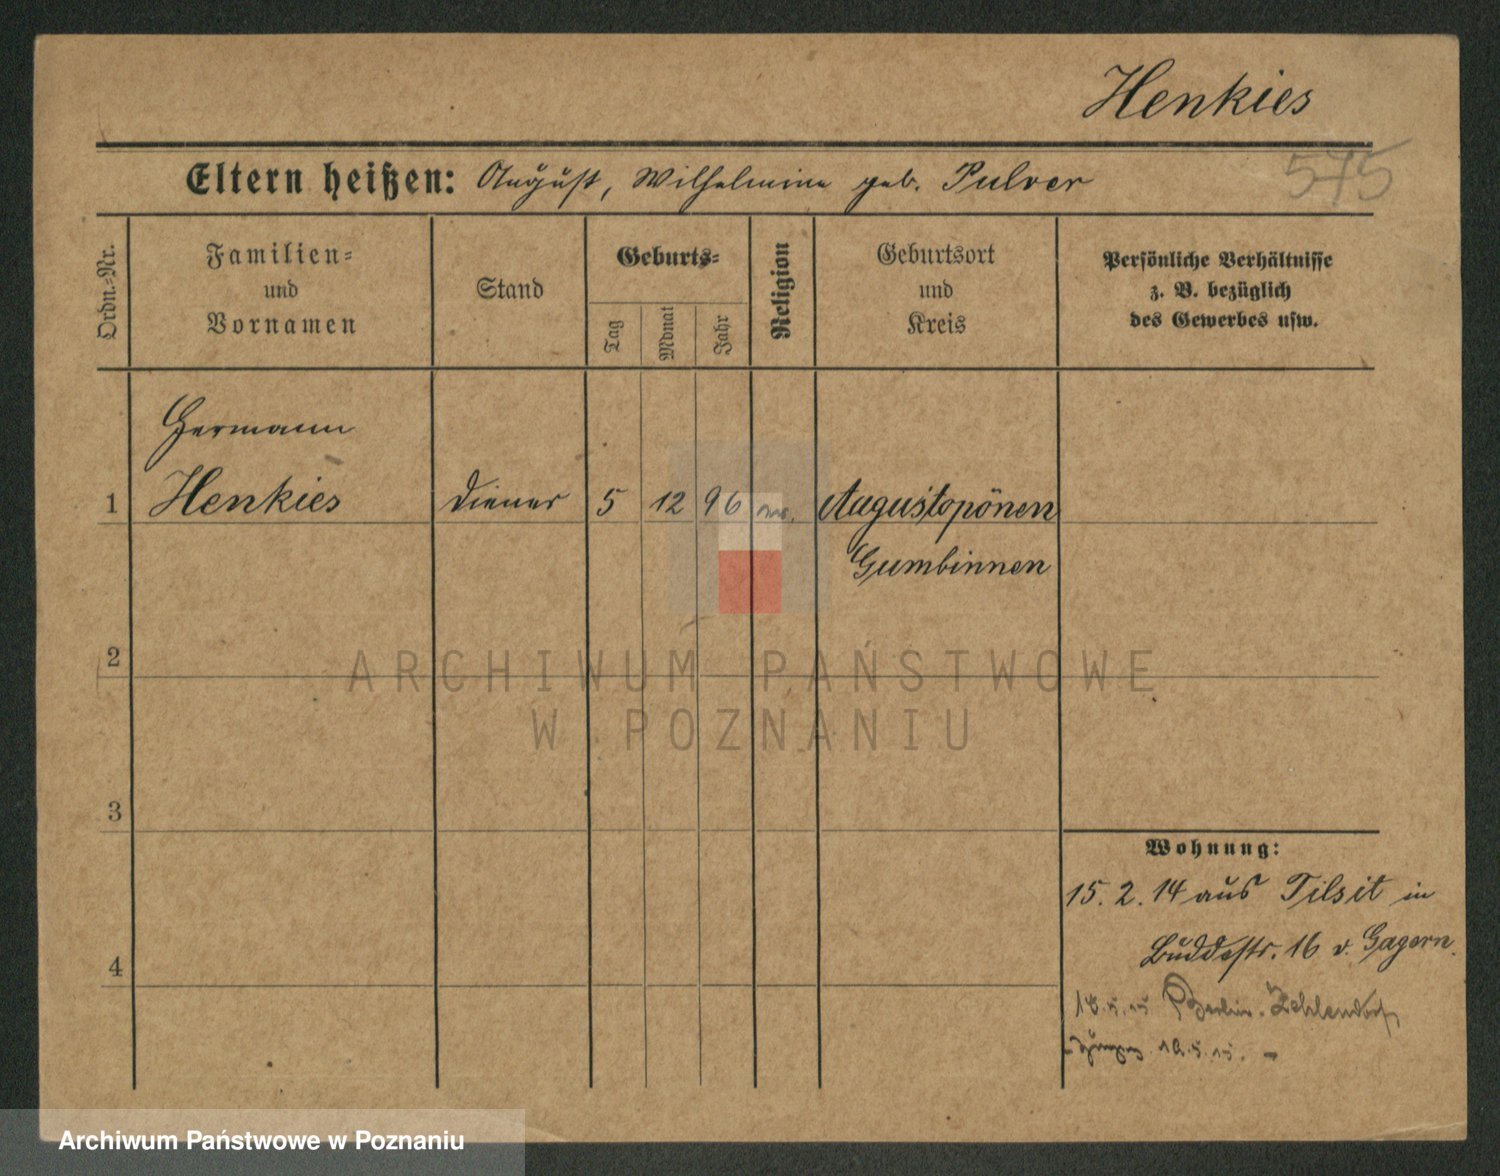 Henkies
575
Eltern heißen: August, Wilhelmine geb. Pulver
Ordn.-Nr.
Familien-
und
Vornamen
Stand
Geburts-
Tag
Monat
Jahr
Religion
Geburtsort
und
Kreis
Persönliche Verhältnisse
z. B. bezüglich
des Gewerbes usw.
Hermann
1 Henkies Diener 5 12 96 Augustopönen
Gumbinnen
2
ARCHIWUM PAŃSTWOWE
W POZNANIU
3
Wohnung:
15. 2. 14 aus Tilsit in
Buddestr. 16 v. Gagern.
4
Berlin-Zehlendorf
Archiwum Państwowe w Poznaniu